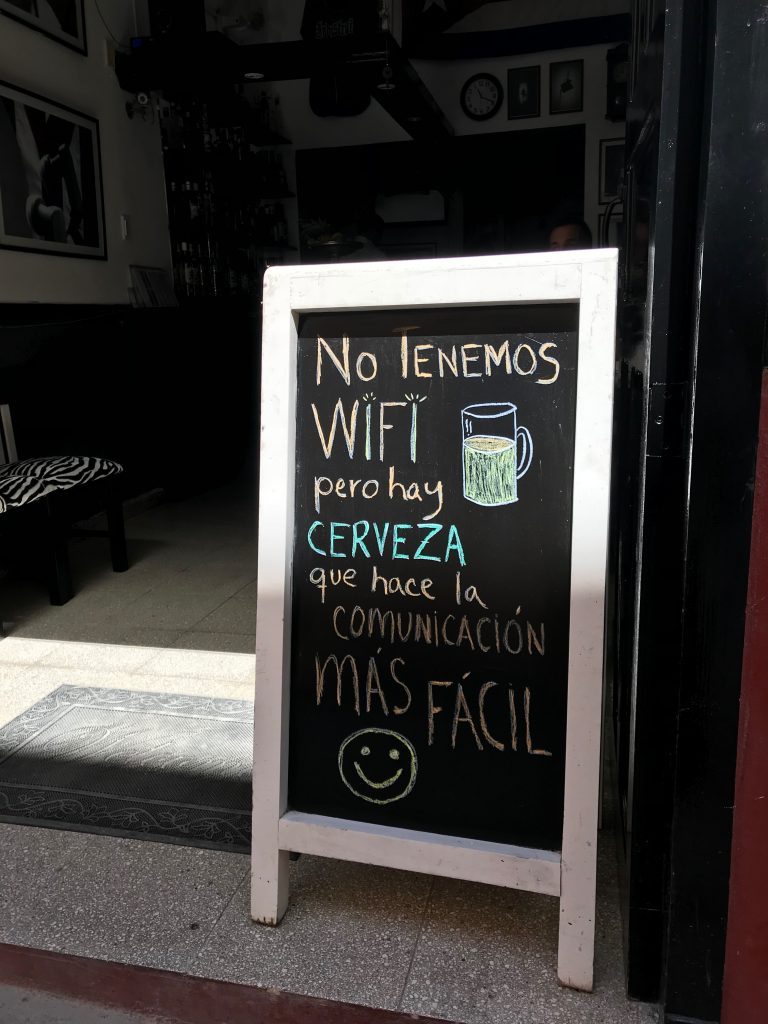 No TENEMOS
WIFI
pero hay
CERVEZA
que hace la
COMUNICACIÓN
MÁS FÁCIL